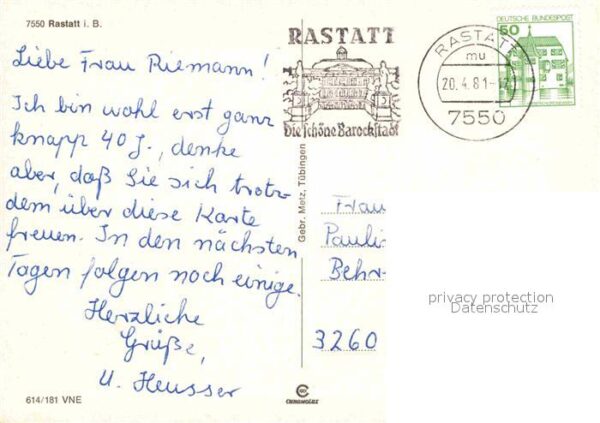 7550 Rastatt i. B.
Liebe Frau Riemann!
Ich bin wohl erst ganz
knapp 40 J., denke
aber, daß Sie sich trotz-
dem über diese Karte
freuen. In den nächsten
Tagen folgen noch einige.
Herzliche
Grüße,
U. Heusser
614/181 VNE
Gebr. Metz, Tübingen
RASTATT
Die schöne Barockstadt
RASTATT
mu
20.4.81-17
7550
DEUTSCHE BUNDESPOST
50
Frau
Pauli
Behr-
3260
privacy protection
Datenschutz